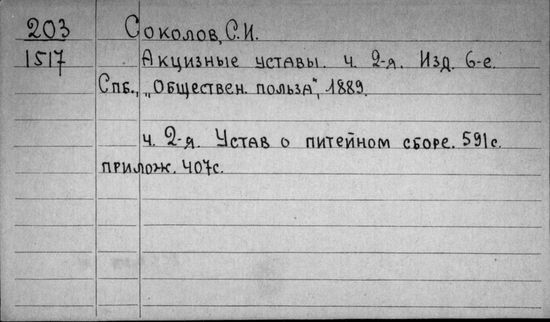 203 Соколов, С.И.
1517 Акцизные уставы. ч. 2-я. Изд. 6-е.
Спб., „Обществен. польза", 1889.
ч. 2-я. Устав о питейном сборе. 591с.
прилож. 407с.